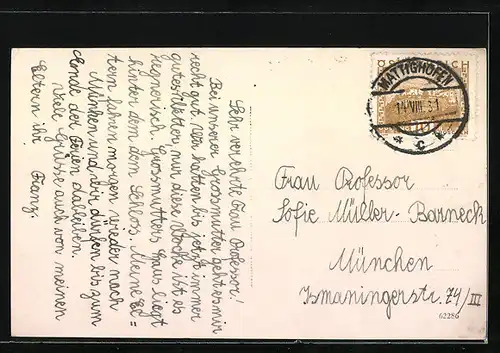 Sehr verehrte Frau Professor!
Bei unserer Grossmutter geht es mir
recht gut. Wir hatten bis jetzt immer
gutes Wetter, nur diese Woche ist es
regnerisch. Grossmutters Haus liegt
hinter dem dem Schloss. Meine El=
tern fahren morgen wieder nach
München und wir dürfen bis zum
Ende der Ferien dableiben.
Viele Grüsse auch von meinen
Eltern ihr Franz.
ÖSTERREICH
MATTIGHOFEN
14.VIII.31
* C *
10
Frau Professor
Sofie Müller-Barneck
München
Ismaningerstr. 74/III
62286